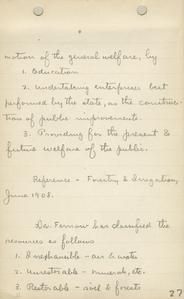 motion of the general welfare, by
1. Education
2. Undertaking enterprises best
performed by the state, as the construc-
tion of public improvements.
3. Providing for the present &
future welfare of the public.
Reference - Forestry & Irrigation,
June 1908.
Dr. Fernow has classified the
resources as follows
1. Inexhaustible - air & water
2. Unrestorable - minerals, etc.
3. Restorable - soil & forests
27